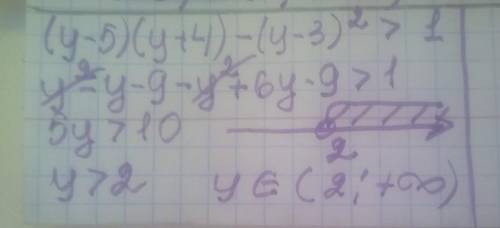 (y-5)(y+4)-(y-3)² > 1
y²-y-9-y²+6y-9>1
5y>10
2
y>2 y∈(2;+∞)